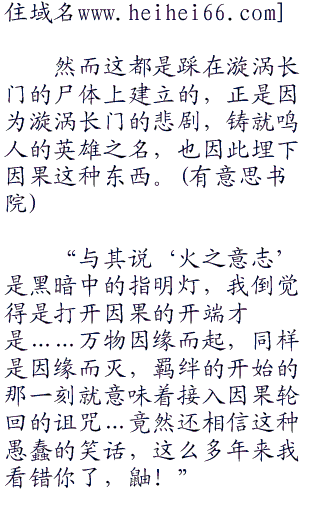 住域名www.heihei66.com]
然而这都是踩在漩涡长
门的尸体上建立的，正是因
为漩涡长门的悲剧，铸就鸣
人的英雄之名，也因此埋下
因果这种东西。(有意思书
院)
“与其说‘火之意志’
是黑暗中的指明灯，我倒觉
得是打开因果的开端才
是……万物因缘而起，同样
是因缘而灭，羁绊的开始的
那一刻就意味着接入因果轮
回的诅咒…竟然还相信这种
愚蠢的笑话，这么多年来我
看错你了，鼬！”